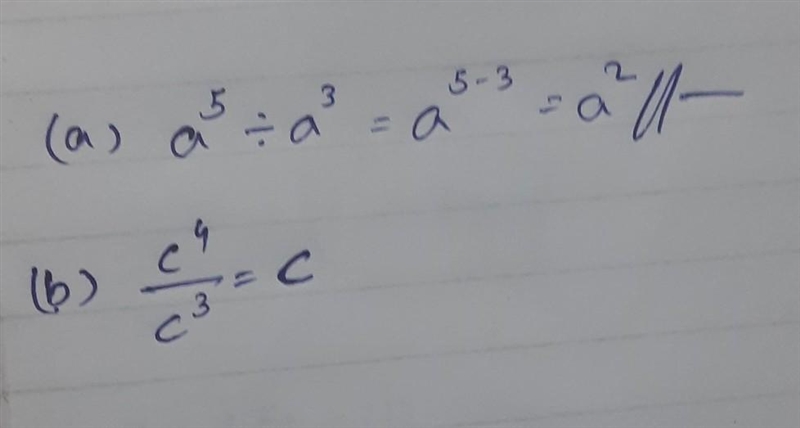 (a) a⁵ ÷ a³ = a⁵⁻³ = a² //—
(b) c⁴/c³ = c